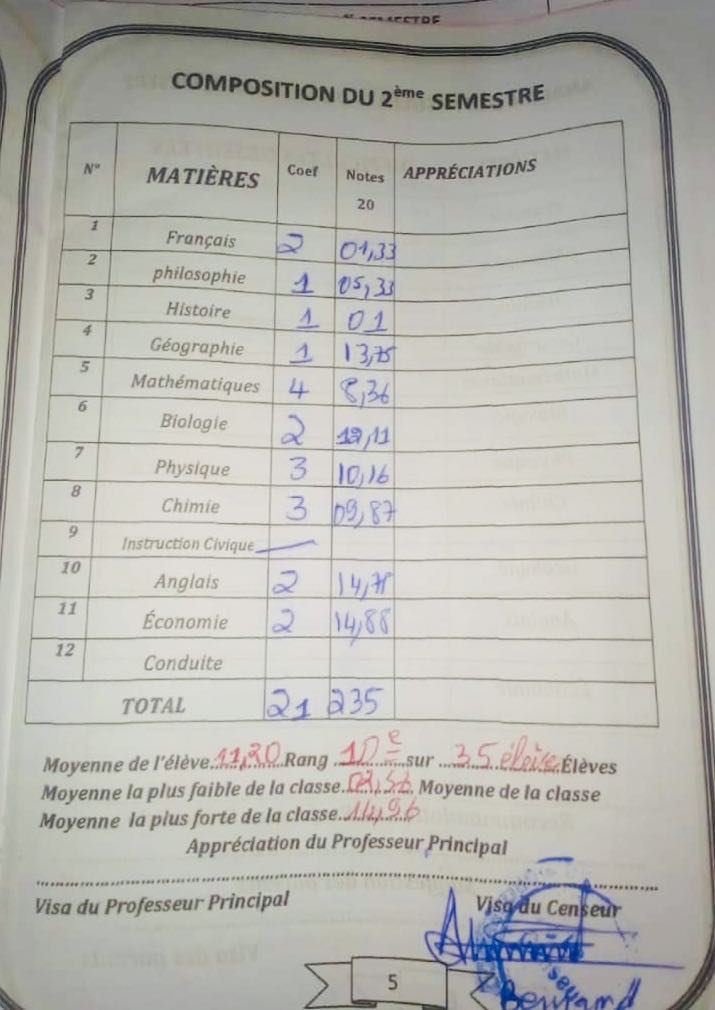 SEMESTRE
COMPOSITION DU 2ème SEMESTRE
N° MATIÈRES Coef Notes 20 APPRÉCIATIONS
1 Français 2 01,33
2 philosophie 1 05,33
3 Histoire 1 01
4 Géographie 1 13,75
5 Mathématiques 4 8,36
6 Biologie 2
7 Physique 3 10,16
8 Chimie 3 09,87
9 Instruction Civique
10 Anglais 2
11 Économie 2 14,88
12 Conduite
TOTAL 21 235
Moyenne de l'élève 11,20 Rang 10e sur 35 élève Élèves
Moyenne la plus faible de la classe Moyenne de la classe
Moyenne la plus forte de la classe 14,96
Appréciation du Professeur Principal
Visa du Professeur Principal Visa du Censeur
Bertrand
5